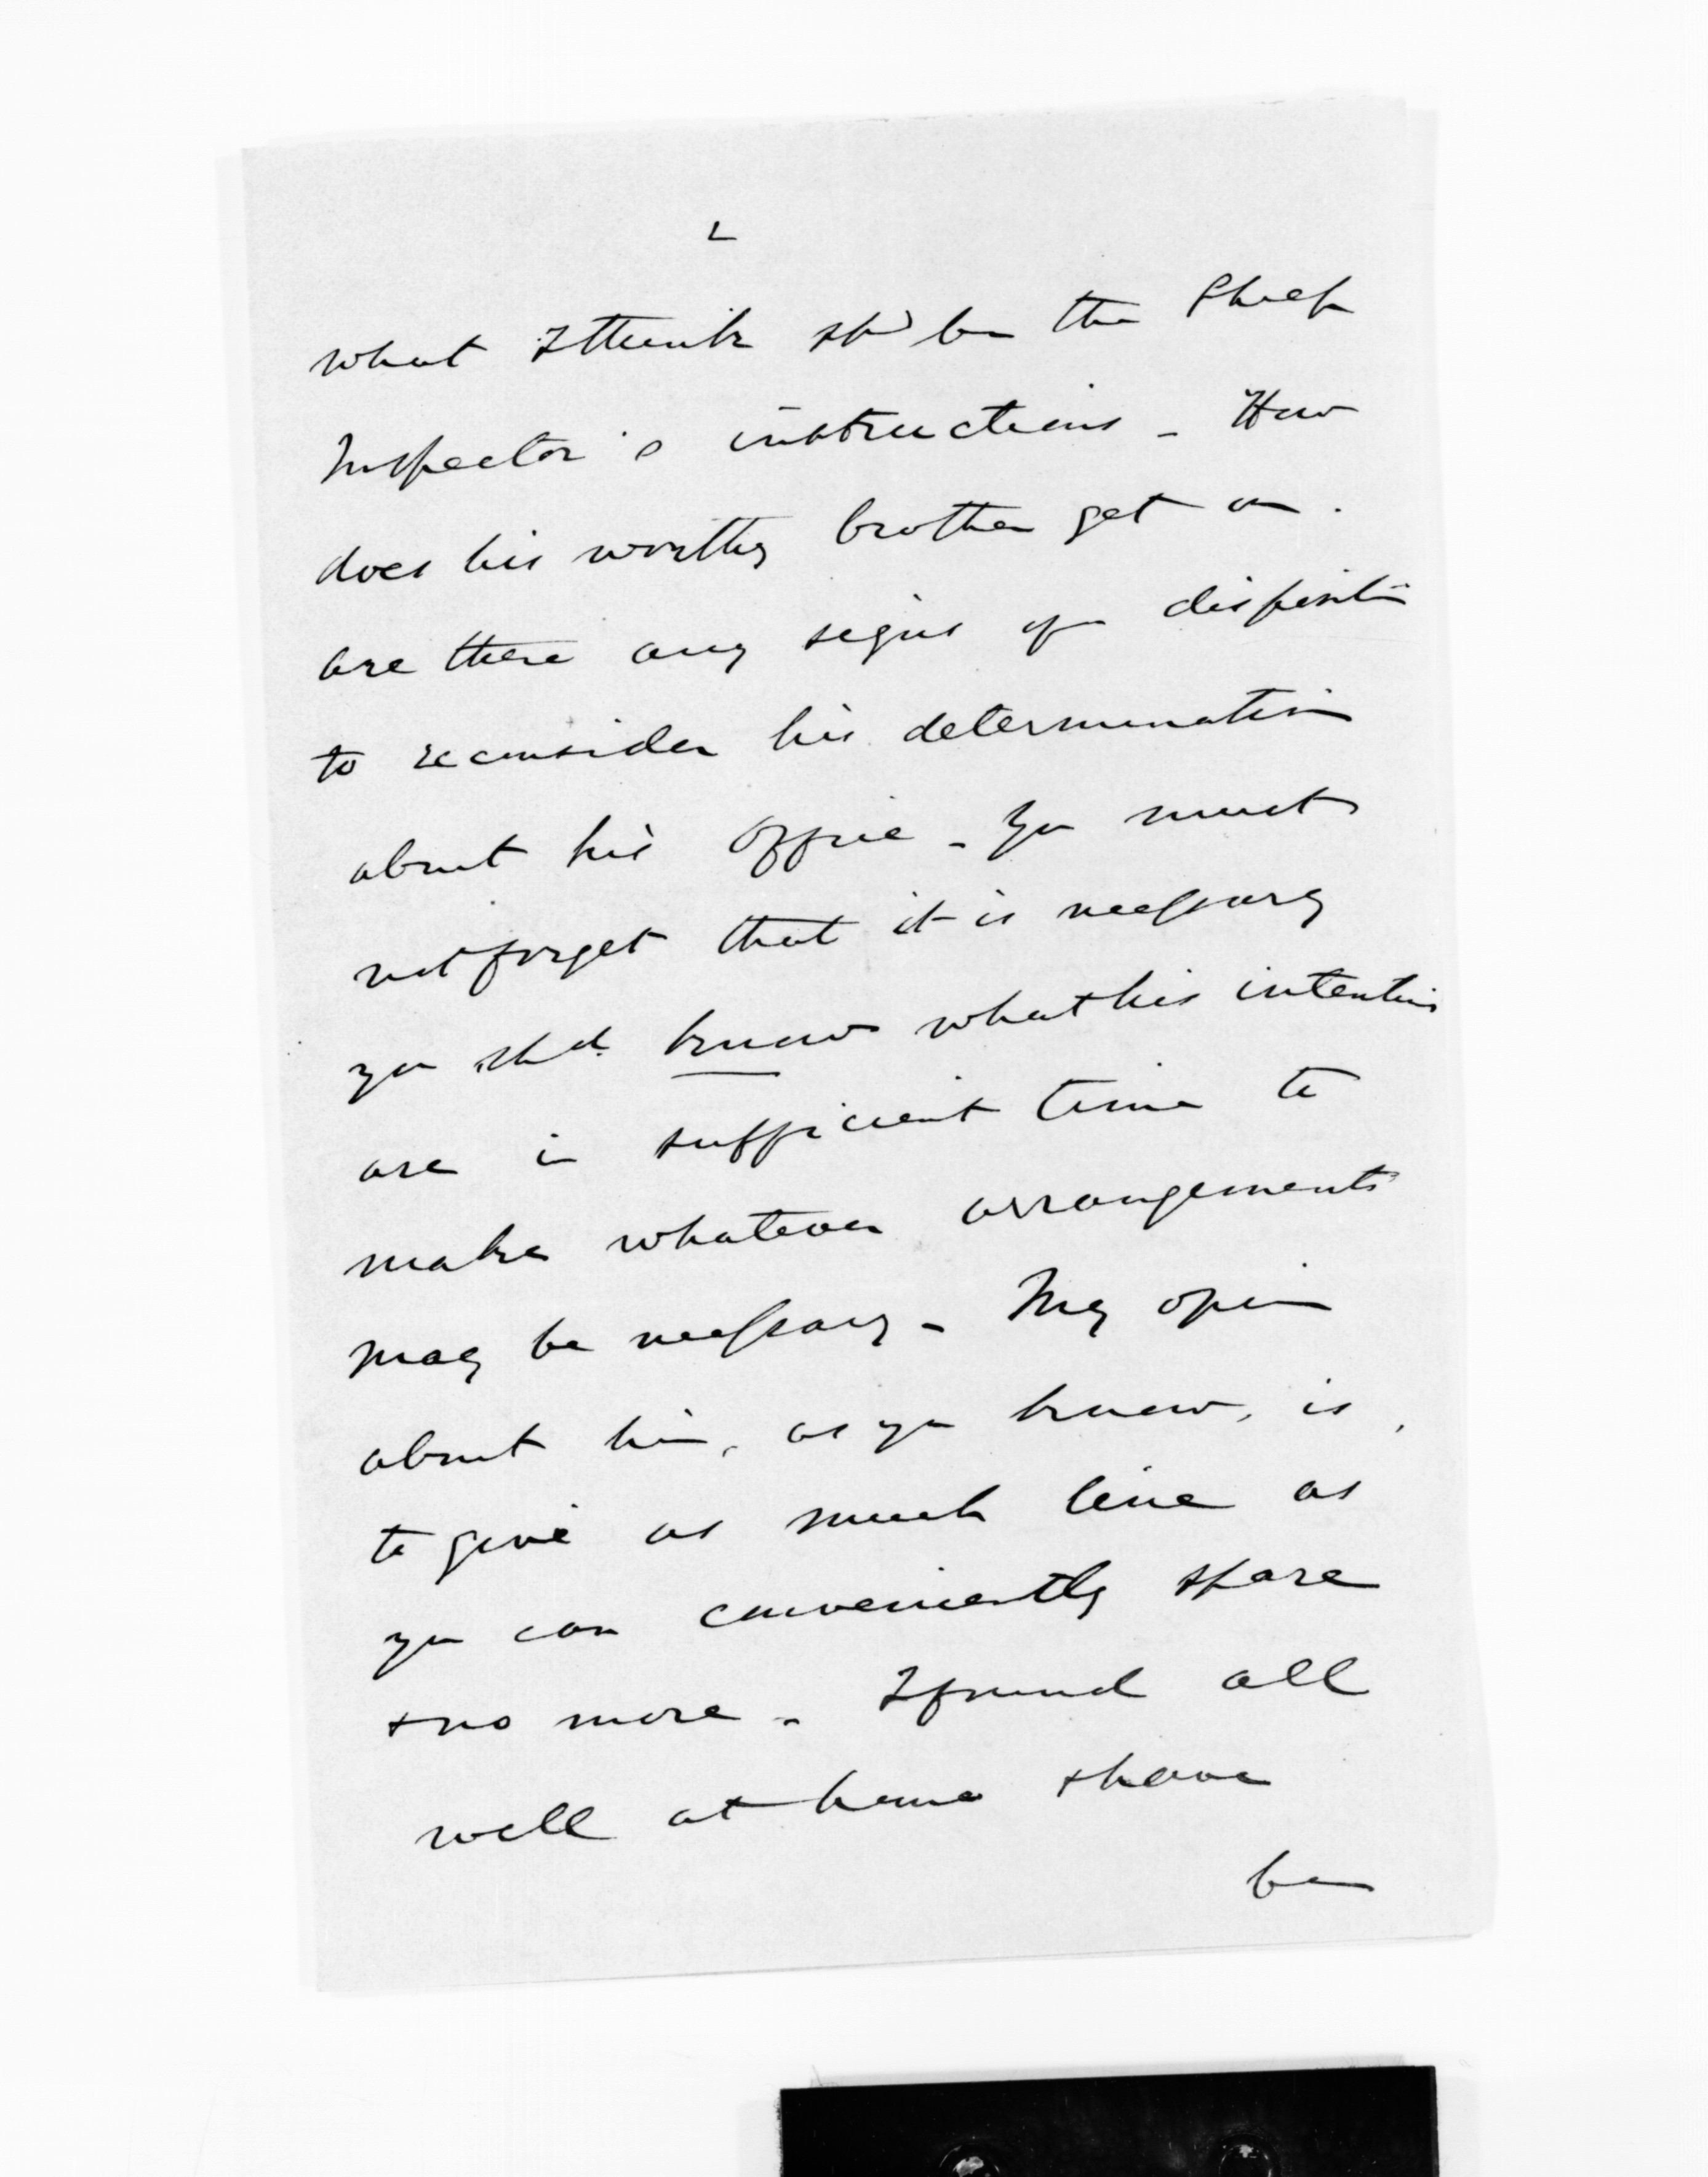 2
what I think shd be the Sheep
Inspector's instructions - How
does his worthy brother get on.
are there any signs of a disposit<sup>n</sup>
to reconsider his determination
about his office - You must
not forget that it is necessary
you shd. know what his intentions
are in sufficient time to
make whatever arrangements
may be necessary - My opin
about him, as you know, is,
to give as much line as
you can conveniently spare
& no more - I found all
well at home & have
been